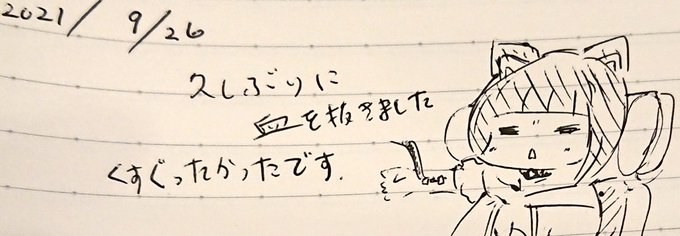 2021/9/26
久しぶりに
血を抜きました
くすぐったかったです.